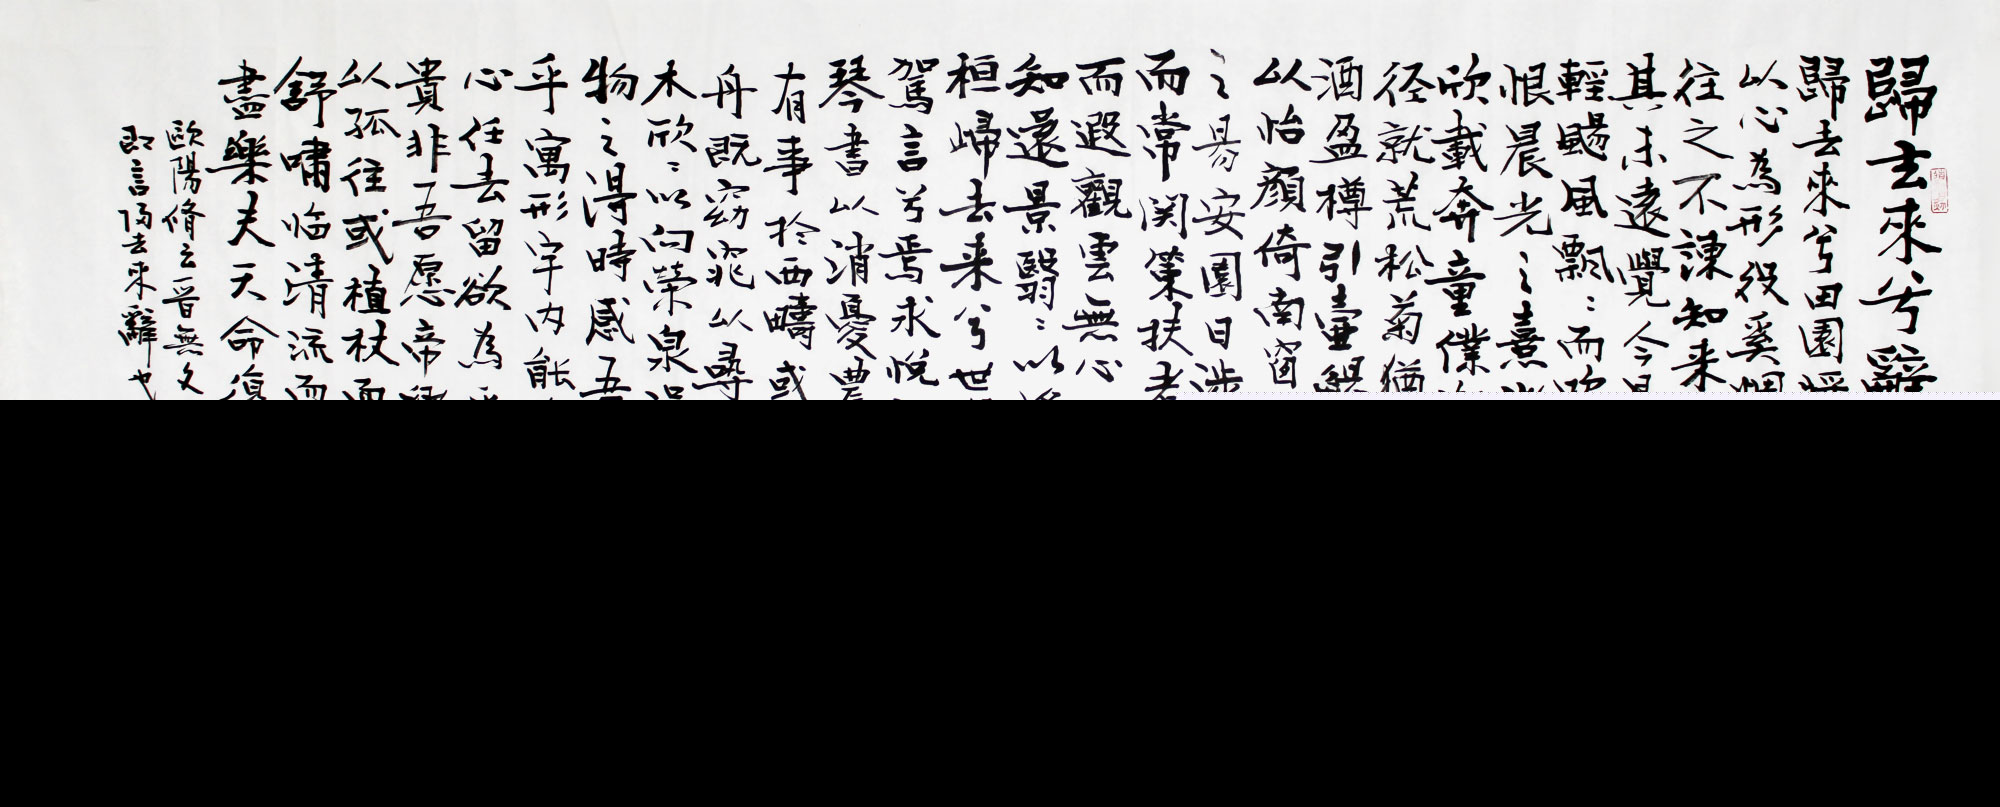 歸去來兮辭
歸去來兮田園
以心為形役奚惆
往之不諫知来
其未遠覺今是
輕颺風飄〻而吹
恨晨光之熹
欣載奔童僕
径就荒松菊猶
酒盈樽引壷觴
以怡顔倚南窗
之易安園日涉
而常関策扶老
而遐觀雲無心
知還景翳〻以
桓歸去来兮世
駕言兮焉求悅
琴書以消憂農
有事於西疇或
舟既窈窕以尋
木欣〻以向榮泉涓
物之得時感吾
乎寓形宇内能
心任去留欲為
貴非吾愿帝鄉
以孤往或植杖而
舒嘯临清流而
盡樂夫天命復
歐陽脩云晋無文
即言歸去来辭也